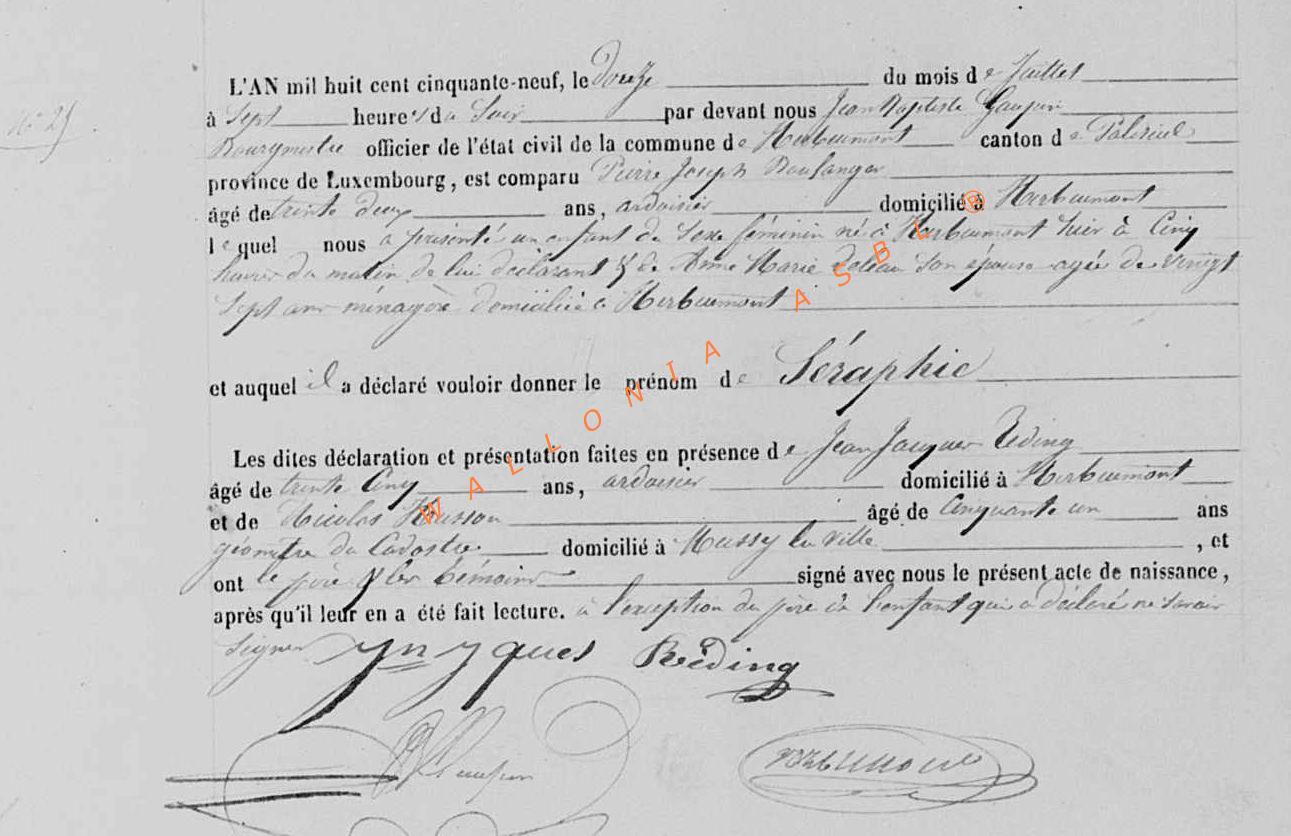 N° 25
L'AN mil huit cent cinquante-neuf, le Douze du mois de Juillet
à Sept heures du Soir par devant nous Jean Baptiste
Bourgmestre officier de l'état civil de la commune de Herbeumont canton de Paliseul
province de Luxembourg, est comparu Pierre Joseph Boulanger
âgé de trente deux ans, ardoisier domicilié à Herbeumont
lequel nous a présenté un enfant du Sexe féminin né à Herbeumont hier à Cinq
heures du matin de lui déclarant & de Anne Marie son épouse agée de Vingt
Sept ans ménagère domiciliée à Herbeumont
et auquel il a déclaré vouloir donner le prénom de Séraphie
Les dites déclaration et présentation faites en présence de Jean Jacques Réding
âgé de trente Cinq ans, ardoisier domicilié à Herbeumont
et de Nicolas Husson âgé de Cinquante un ans
géomètre du Cadastre domicilié à Mussy la Ville, et
ont le père & les témoins signé avec nous le présent acte de naissance,
après qu'il leur en a été fait lecture. à l'exception du père de l'enfant qui a déclaré ne savoir
Signer Jn Jques Rèding
WALLONIA ASBL ®